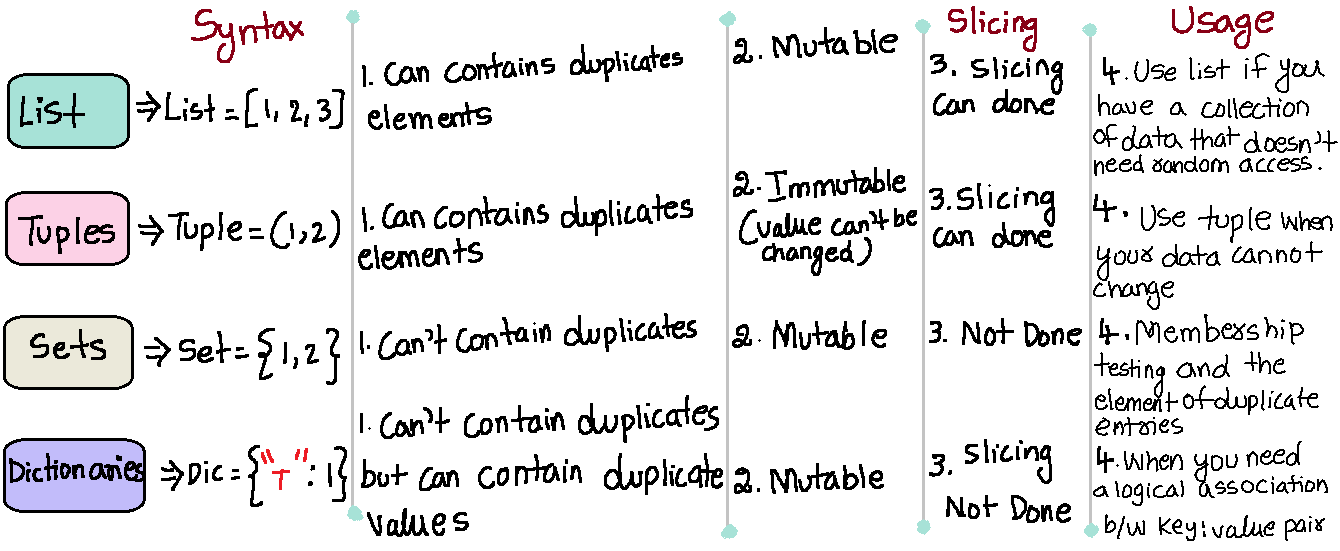 Syntax
Slicing
Usage
List
⇒ List = [1, 2, 3]
1. Can contains duplicates
elements
2. Mutable
3. Slicing
Can done
4. Use list if you
have a collection
of data that doesn't
need random access.
Tuples
⇒ Tuple = (1,2)
1. Can contains duplicates
elements
2. Immutable
(value can't be
changed)
3. Slicing
can done
4. Use tuple when
your data cannot
change
Sets
⇒ Set = {1,2}
1. Can't contain duplicates
2. Mutable
3. Not Done
4. Membership
testing and the
element of duplicate
entries
Dictionaries
⇒ Dic = {"T" : 1}
1. Can't contain duplicates
but can contain duplicate
values
2. Mutable
3. Slicing
Not Done
4. When you need
a logical association
b/w key:value pair